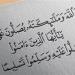 الله وملائكته يصلون
يا أيها الذين آمنوا
عليه وسلموا تسليما